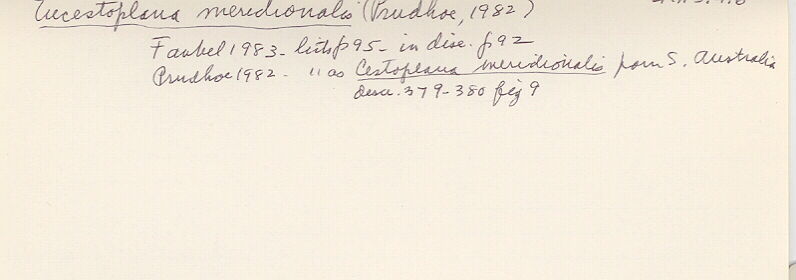 Eucestoplana meridionalis (Prudhoe, 1982)
Faubel 1983 - lists p 95 - in disc. p 92
Prudhoe 1982 - " as Cestoplana meridionalis from S. Australia
desc. 379-380 fig 9